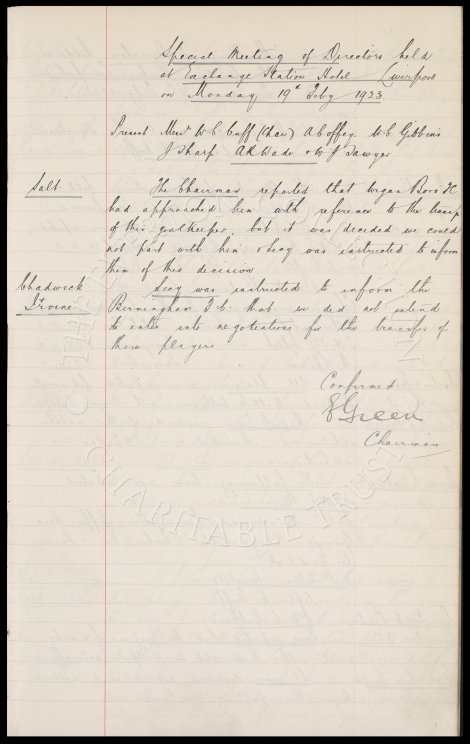 Special Meeting of Directors held
at Exchange Station Hotel Liverpool
on Monday 19th Feby 1923.
Present Messrs W.C. Cuff (Chair) A Coffey W.C. Gibbins
J Sharp A R Wade & W J Sawyer
Salt. The Chairman reported that Wigan Boro FC
had approached him with reference to the transfer
of this goalkeeper, but it was decided we could
not part with him & Secy was instructed to inform
them of this decision
Chadwick Secy was instructed to inform the
Irvine Birmingham F.C. that we did not intend
to enter into negotiations for the transfer of
these players
Confirmed
E Green
Chairman
THE EVERTON COLLECTION
CHARITABLE TRUST